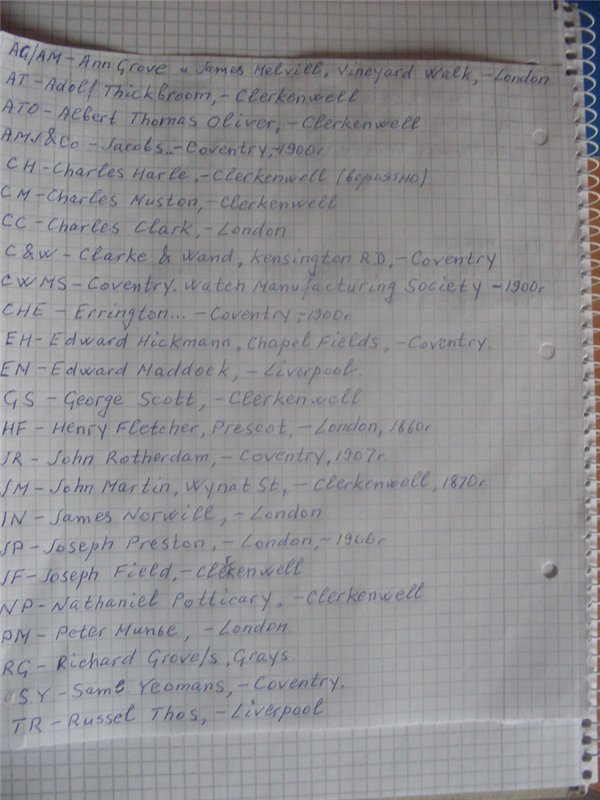 AG/AM - Ann Grove и James Melvill, Vineyard Walk, - London
AT - Adolf Thickbroom, - Clerkenwell
ATO - Albert Thomas Oliver, - Clerkenwell
AMJ & Co - Jacobs.. - Coventry, ~1900г
CH - Charles Harle, - Clerkenwell (вероятно)
CM - Charles Muston, - Clerkenwell
CC - Charles Clark, - London
C&W - Clarke & Wand, Kensington RD, - Coventry
CWMS - Coventry. Watch Manufacturing Society ~1900г
CHE - Errington... - Coventry, ~1900г
EH - Edward Hickmann, Chapel Fields, - Coventry.
EM - Edward Maddock, - Liverpool.
GS - George Scott, - Clerkenwell
HF - Henry Fletcher, Prescot, - London, 1860г
JR - John Rotherdam, - Coventry, 1907г.
JM - John Martin, Wynat St, - Clerkenwell, 1870г
JN - James Norwill, - London
JP - Joseph Preston, - London, ~1900г
JF - Joseph Field, - Clerkenwell
NP - Nathaniel Potticary, - Clerkenwell
PM - Peter Munse, - London.
RG - Richard Grove/s, Grays.
SY - Saml Yeomans, - Coventry.
TR - Russel Thos, - Liverpool